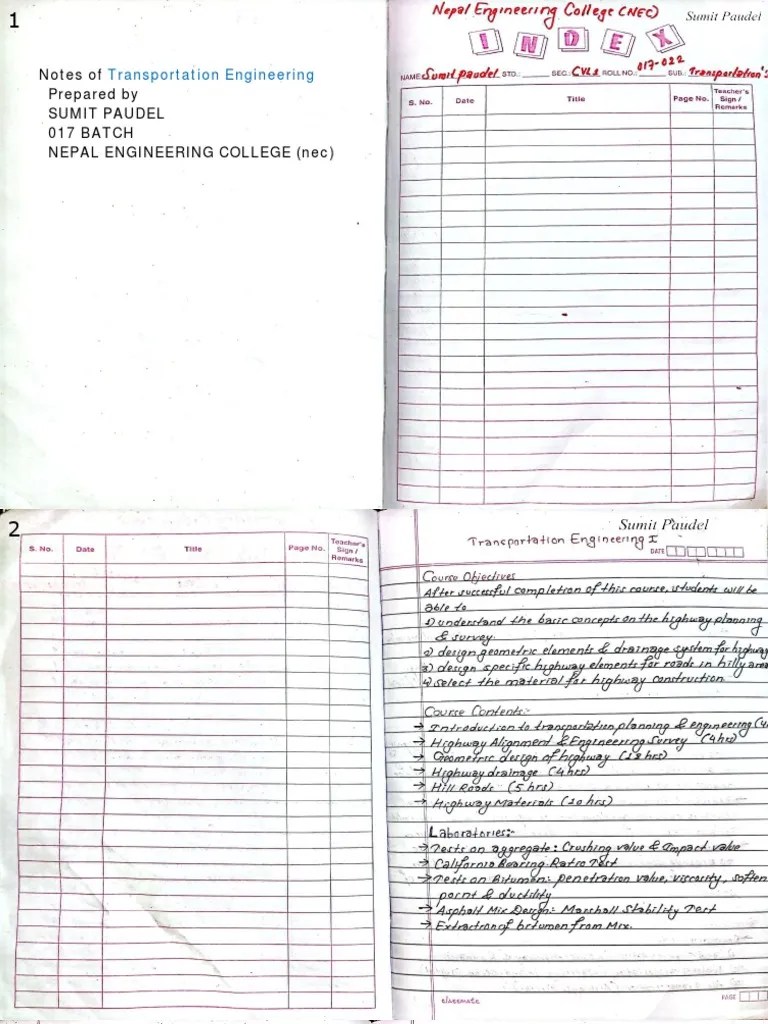 1
Notes of Transportation Engineering
Prepared by
SUMIT PAUDEL
017 BATCH
NEPAL ENGINEERING COLLEGE (nec)
Nepal Engineering College (NEC)
Sumit Paudel
INDEX
NAME: Sumit paudel STD.: SEC.: CVL1 ROLL NO.: 017-022 SUB.: Transportation's
S. No. Date Title Page No. Teacher's Sign / Remarks
2
S. No. Date Title Page No. Teacher's Sign / Remarks
Sumit Paudel
Transportation Engineering I
DATE
Course Objectives
After successful completion of this course, students will be
able to
1) understand the basic concepts on the highway planning
& survey
2) design geometric elements & drainage system for highway
3) design specific highway elements for roads in hilly area
4) select the material for highway construction
Course Contents:-
→ Introduction to transportation planning & engineering (4
→ Highway Alignment & Engineering Survey (4hrs)
→ Geometric design of highway (18 hrs)
→ Highway drainage (4 hrs)
→ Hill Roads (5 hrs)
→ Highway Materials (10 hrs)
Laboratories:-
→ Tests on aggregate: Crushing value & Impact value
→ California Bearing Ratio Test
→ Tests on Bitumen: penetration value, viscosity, soften
point & ductility
→ Asphalt Mix Design: Marshall Stability Test
→ Extraction of bitumen from Mix.
classmate
PAGE